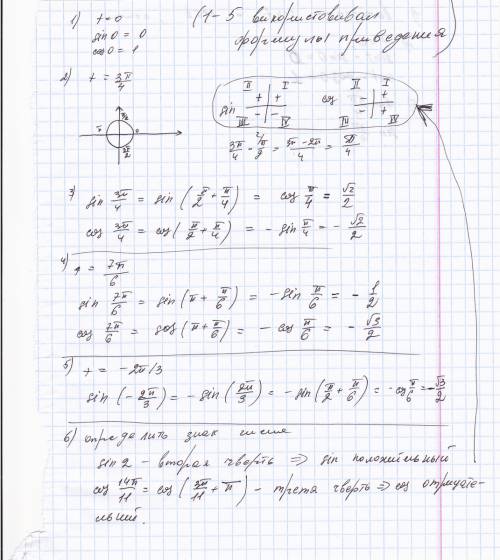 1) t=0 (1-5 використовивал
sin 0 = 0 формулы приведения)
cos 0 = 1
2) t = 3π/4
II I II I
sin + + cos - +
- - - +
III IV III IV
π/2
π 0
3π/2
3π/4 - π/2 = (3π-2π)/4 = π/4
3) sin 3π/4 = sin (π/2 + π/4) = cos π/4 = √2/2
cos 3π/4 = cos (π/2 + π/4) = - sin π/4 = - √2/2
4) t = 7π/6
sin 7π/6 = sin (π + π/6) = - sin π/6 = - 1/2
cos 7π/6 = cos (π + π/6) = - cos π/6 = - √3/2
5) t = - 2π/3
sin (- 2π/3) = - sin (2π/3) = - sin (π/2 + π/6) = - cos π/6 = - √3/2
6) определить знак числа
sin 2 - вторая чверть ⇒ sin положительный
cos 14π/11 = cos (3π/11 + π) - третя чверть ⇒ cos отрицате-
льний.